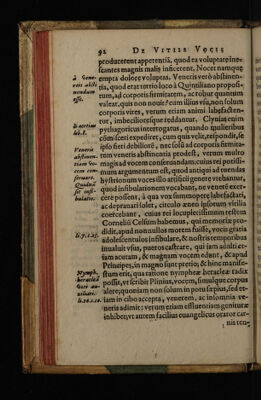 92 DE VITIIS VOCIS
producerent appetentia, quod ea voluptate ine-
scantes magnis malis inficeret. Nocet namque
empta dolore voluptas. Veneris verò abstinen-
tia, quod erat tertio loco à Quintiliano proposi-
tum, ad corporis firmitatem, ac robur quantum
valeat, quis non nouit? cum illius vsu, non solum
corporis vires, verum etiam animi labefacten-
tur, imbecilliores que reddantur. Clynias enim
pythagoricus interrogatus, quando mulieribus
commisceri expediret, cum quis velit, respondit, se
ipso fieri debilior, nec solùm ad corporis firmita-
tem veneris abstinentia prodest, verum multo
magis ad vocem conseruandam, cuius rei potissi-
mum argumentum est, quod antiqui ad tuendas
hystrionum voces illo artificij genere vtebantur,
quod infibulationem vocabant, ne venerem exer-
cere possent, à qua vox summopere labefactari,
ac deprauari solet, circulo æneo ipsorum virilia
coercebant, cuius rei locupletissimum testem
Cornelium Celsum habemus, qui memoriæ pro-
didit, apud nonnullos morem fuisse, vocis gratia
adolescentulos infibulare, & nostris temporibus
inualuit vsus, pueros castrare, qui tam acutis et-
iam acutam, & magnam vocem edant, & apud
Principes, in magno sint pretio, & hinc manife-
stum erit, qua ratione nymphæ heracleæ radix
possit, vt scribit Plinius, vocem, simulque corpus
alere, quoniam non solum in potu sæpius, sed et-
iam in cibo accepta, venerem, ac insomnia ve-
neris adimit: verum etiam effluentiam genituræ
inhibet, vt autem facilius euangelicus orator car-
nis ten-
à Vene-
reis absti-
nendum
esse.
Veneris
abstinen-
tiam vo-
cem con-
seruare.
Quid nā
sit infi-
bulatio.
li.7.c.25.
Nymph.
heraclea